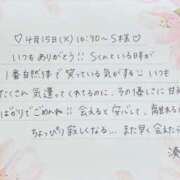 ♡4月15日(火)10:30〜S様♡
いつもありがとう!! Sくんといる時が
1番自然体で笑っている気がする♡いつも
たくさん気遣ってくれるのに、その優しさに甘え
ばかりでごめんね!! 会えると
ちょっぴり寂しくなる... また早く会えたら
湊